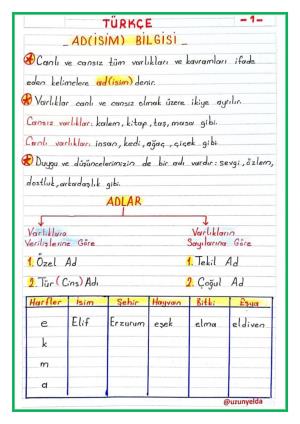 TÜRKÇE
-1-
AD(İSİM) BİLGİSİ
Canlı ve cansız tüm varlıkları ve kavramları ifade
eden kelimelere ad(isim) denir.
Varlıklar canlı ve cansız olmak üzere ikiye ayrılır.
Cansız varlıklar: kalem, kitap, taş, masa gibi.
Canlı varlıklar: insan, kedi, ağaç, çiçek gibi.
Duygu ve düşüncelerimizin de bir adı vardır: sevgi, özlem,
dostluk, arkadaşlık gibi.
ADLAR
Varlıklara Varlıkların
Verilişlerine Göre Sayılarına Göre
1. Özel Ad 1. Tekil Ad
2. Tür (Cins) Adı 2. Çoğul Ad
Harfler İsim Şehir Hayvan Bitki Eşya
e Elif Erzurum eşek elma eldiven
k
m
a
@uzunyelda